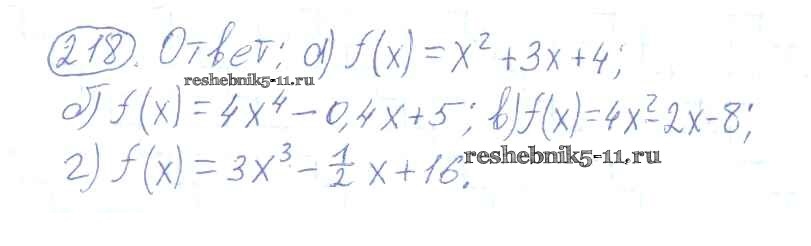 218. Ответ: а) f(x) = x² + 3x + 4;
reshebnik5-11.ru
б) f(x) = 4x⁴ - 0,4x + 5; в) f(x) = 4x² - 2x - 8;
г) f(x) = 3x³ - 1/2 x + 16.
reshebnik5-11.ru